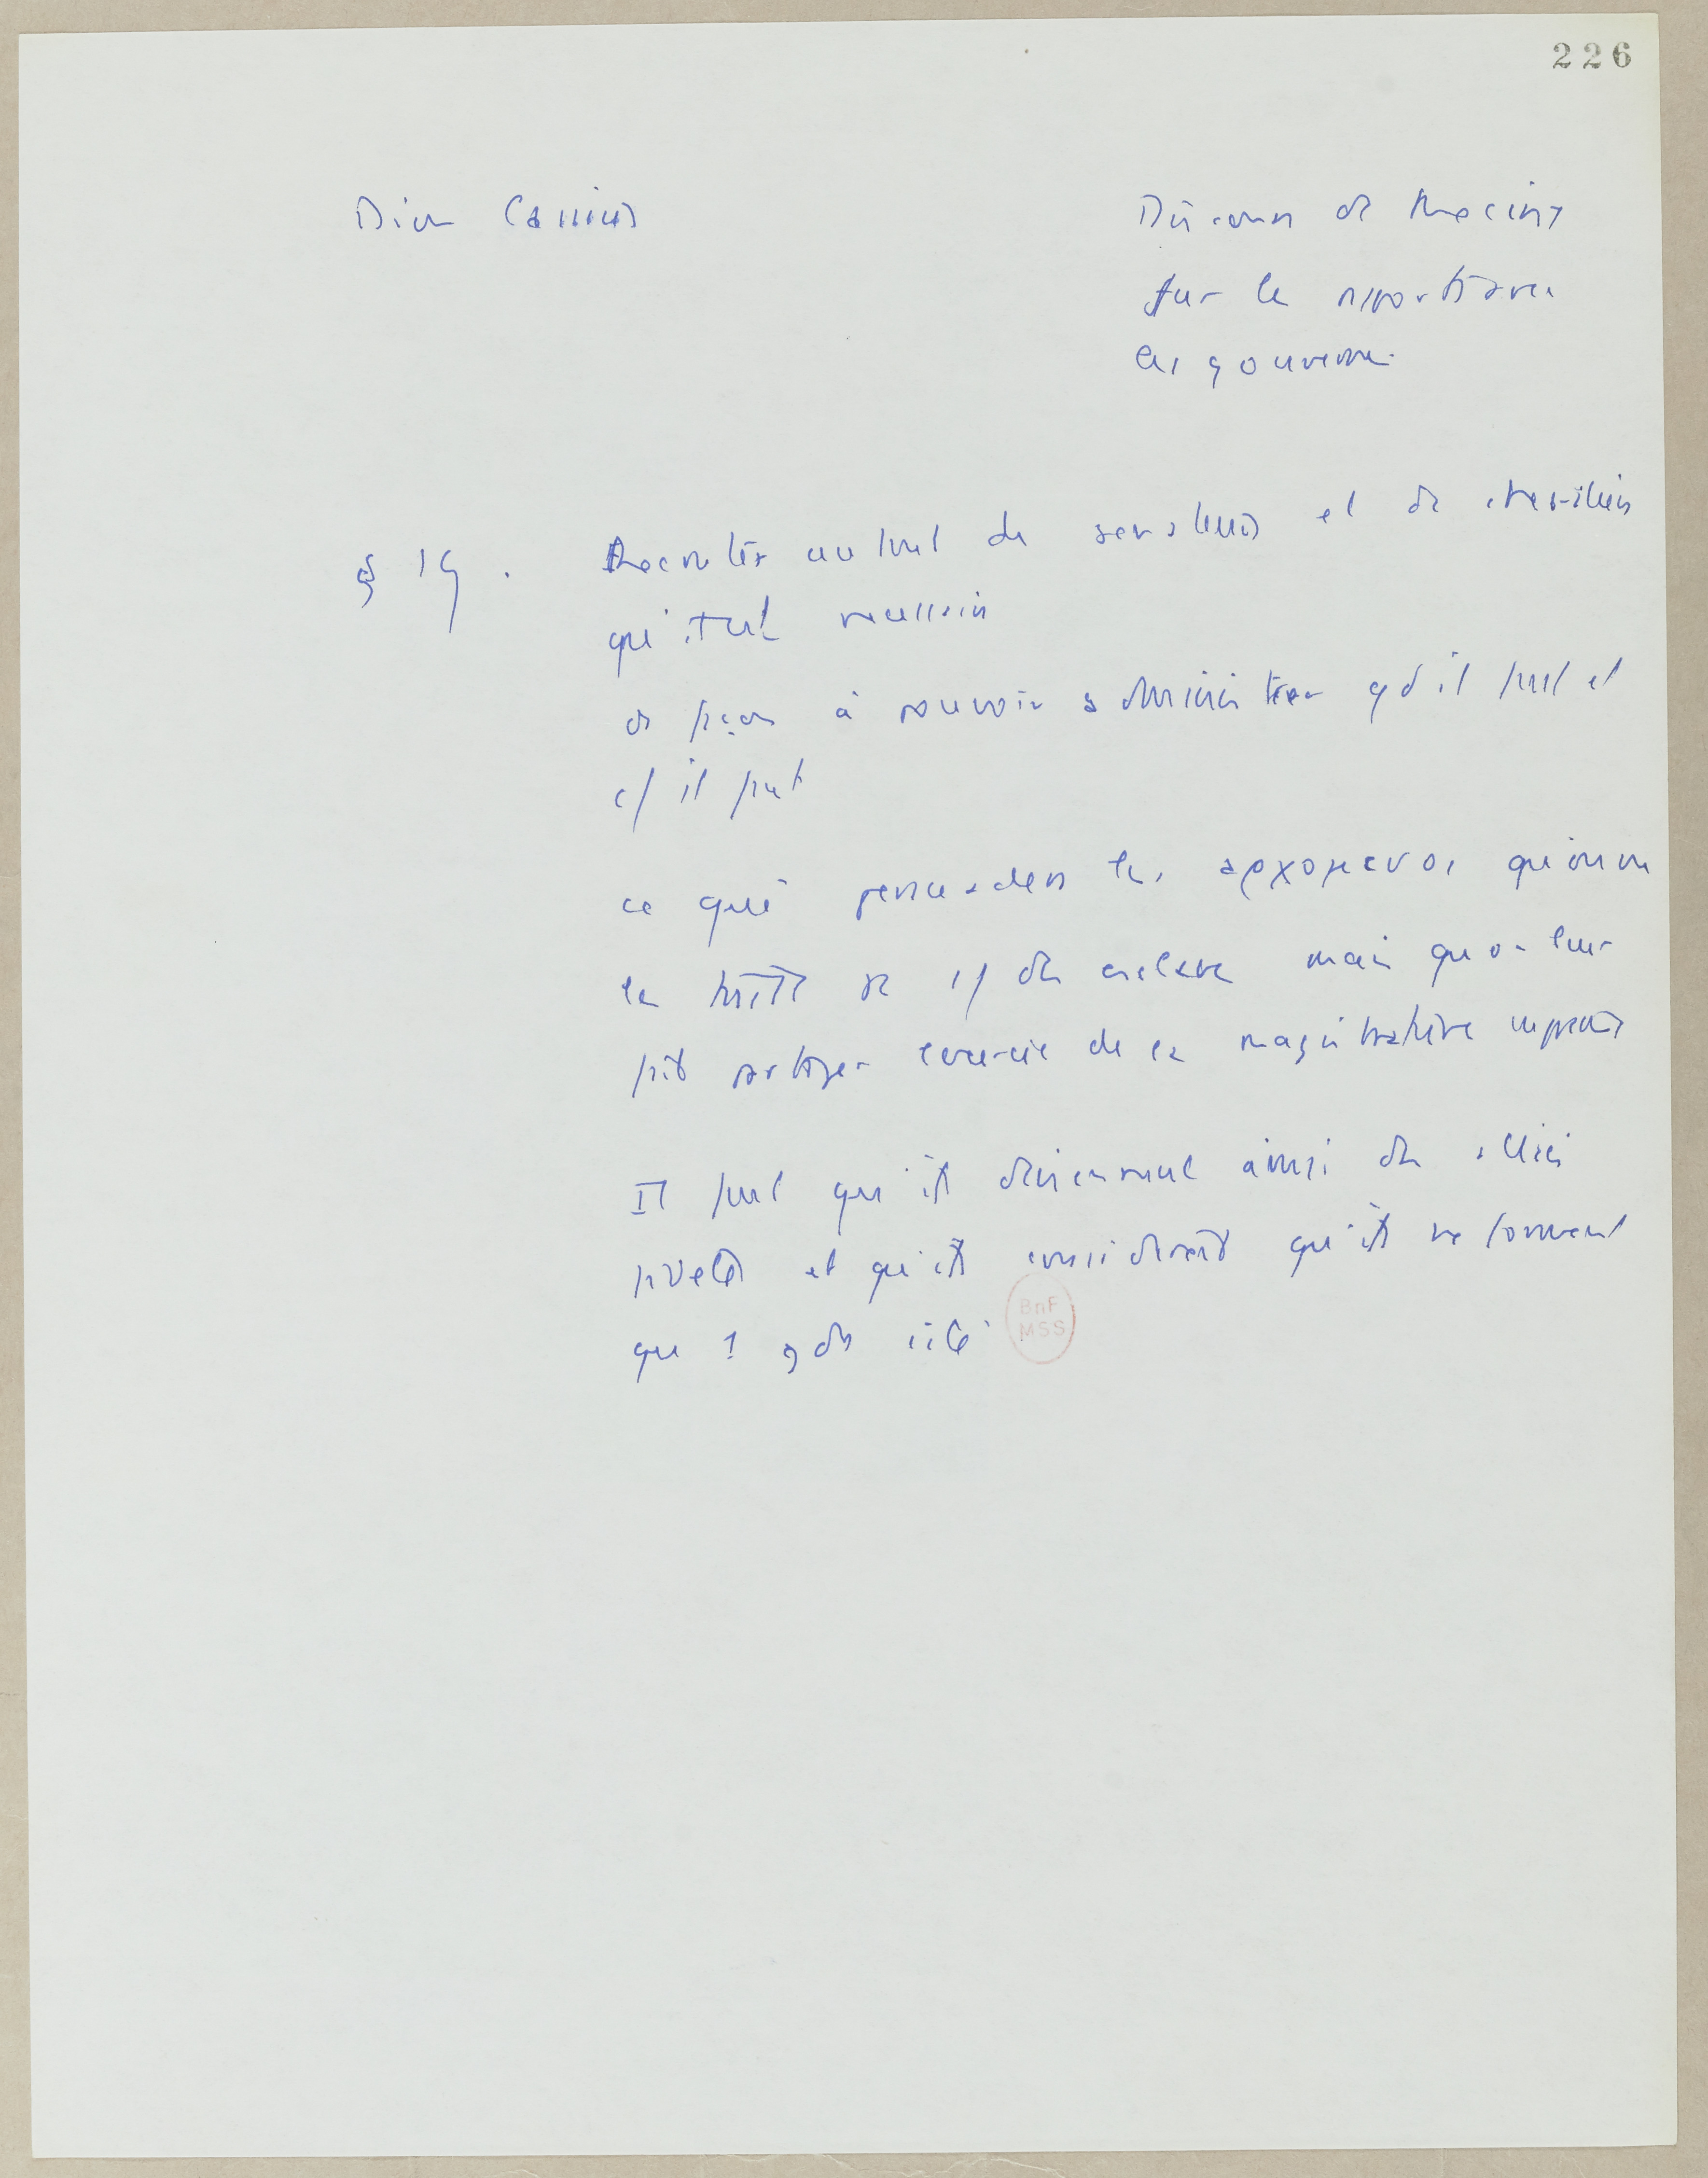 226
Dion Cassius
Discours de Mécène
sur le
les gouvern.
§ 19. Recruter autant de sénateurs et de chevaliers
qu'il est nécessaire
de façon à pouvoir administrer qd il faut et
c/ il faut
ce qui persuadera les αρχομενοι qu'on ne
les traite pas c/ des esclaves mais qu'on leur
fait partager exercice de la magistrature
Il faut qu'ils deviennent ainsi des alliés
fidèles et qu'ils considèrent qu'ils ne forment
que 1 gde cité
BnF
MSS